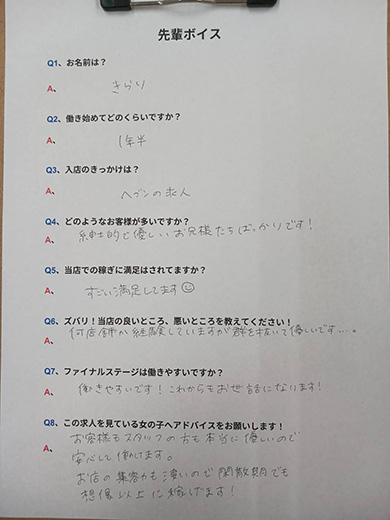 先輩ボイス
Q1、お名前は？
A、 きらり
Q2、働き始めてどのくらいですか？
A、 1年半
Q3、入店のきっかけは？
A、 ヘブンの求人
Q4、どのようなお客様が多いですか？
A、 紳士的で優しいお兄様たちばっかりです！
Q5、当店での稼ぎに満足はされてますか？
A、 すごい満足してます☺
Q6、ズバリ！当店の良いところ、悪いところを教えてください！
A、 何店舗か経験していますが群を抜いて優しいです…。
Q7、ファイナルステージは働きやすいですか？
A、 働きやすいです！これからもお世話になります！
Q8、この求人を見ている女の子へアドバイスをお願いします！
A、 お客様もスタッフの方も本当に優しいので
安心して働けます。
お店の集客力も凄いので閑散期でも
想像以上に稼げます！